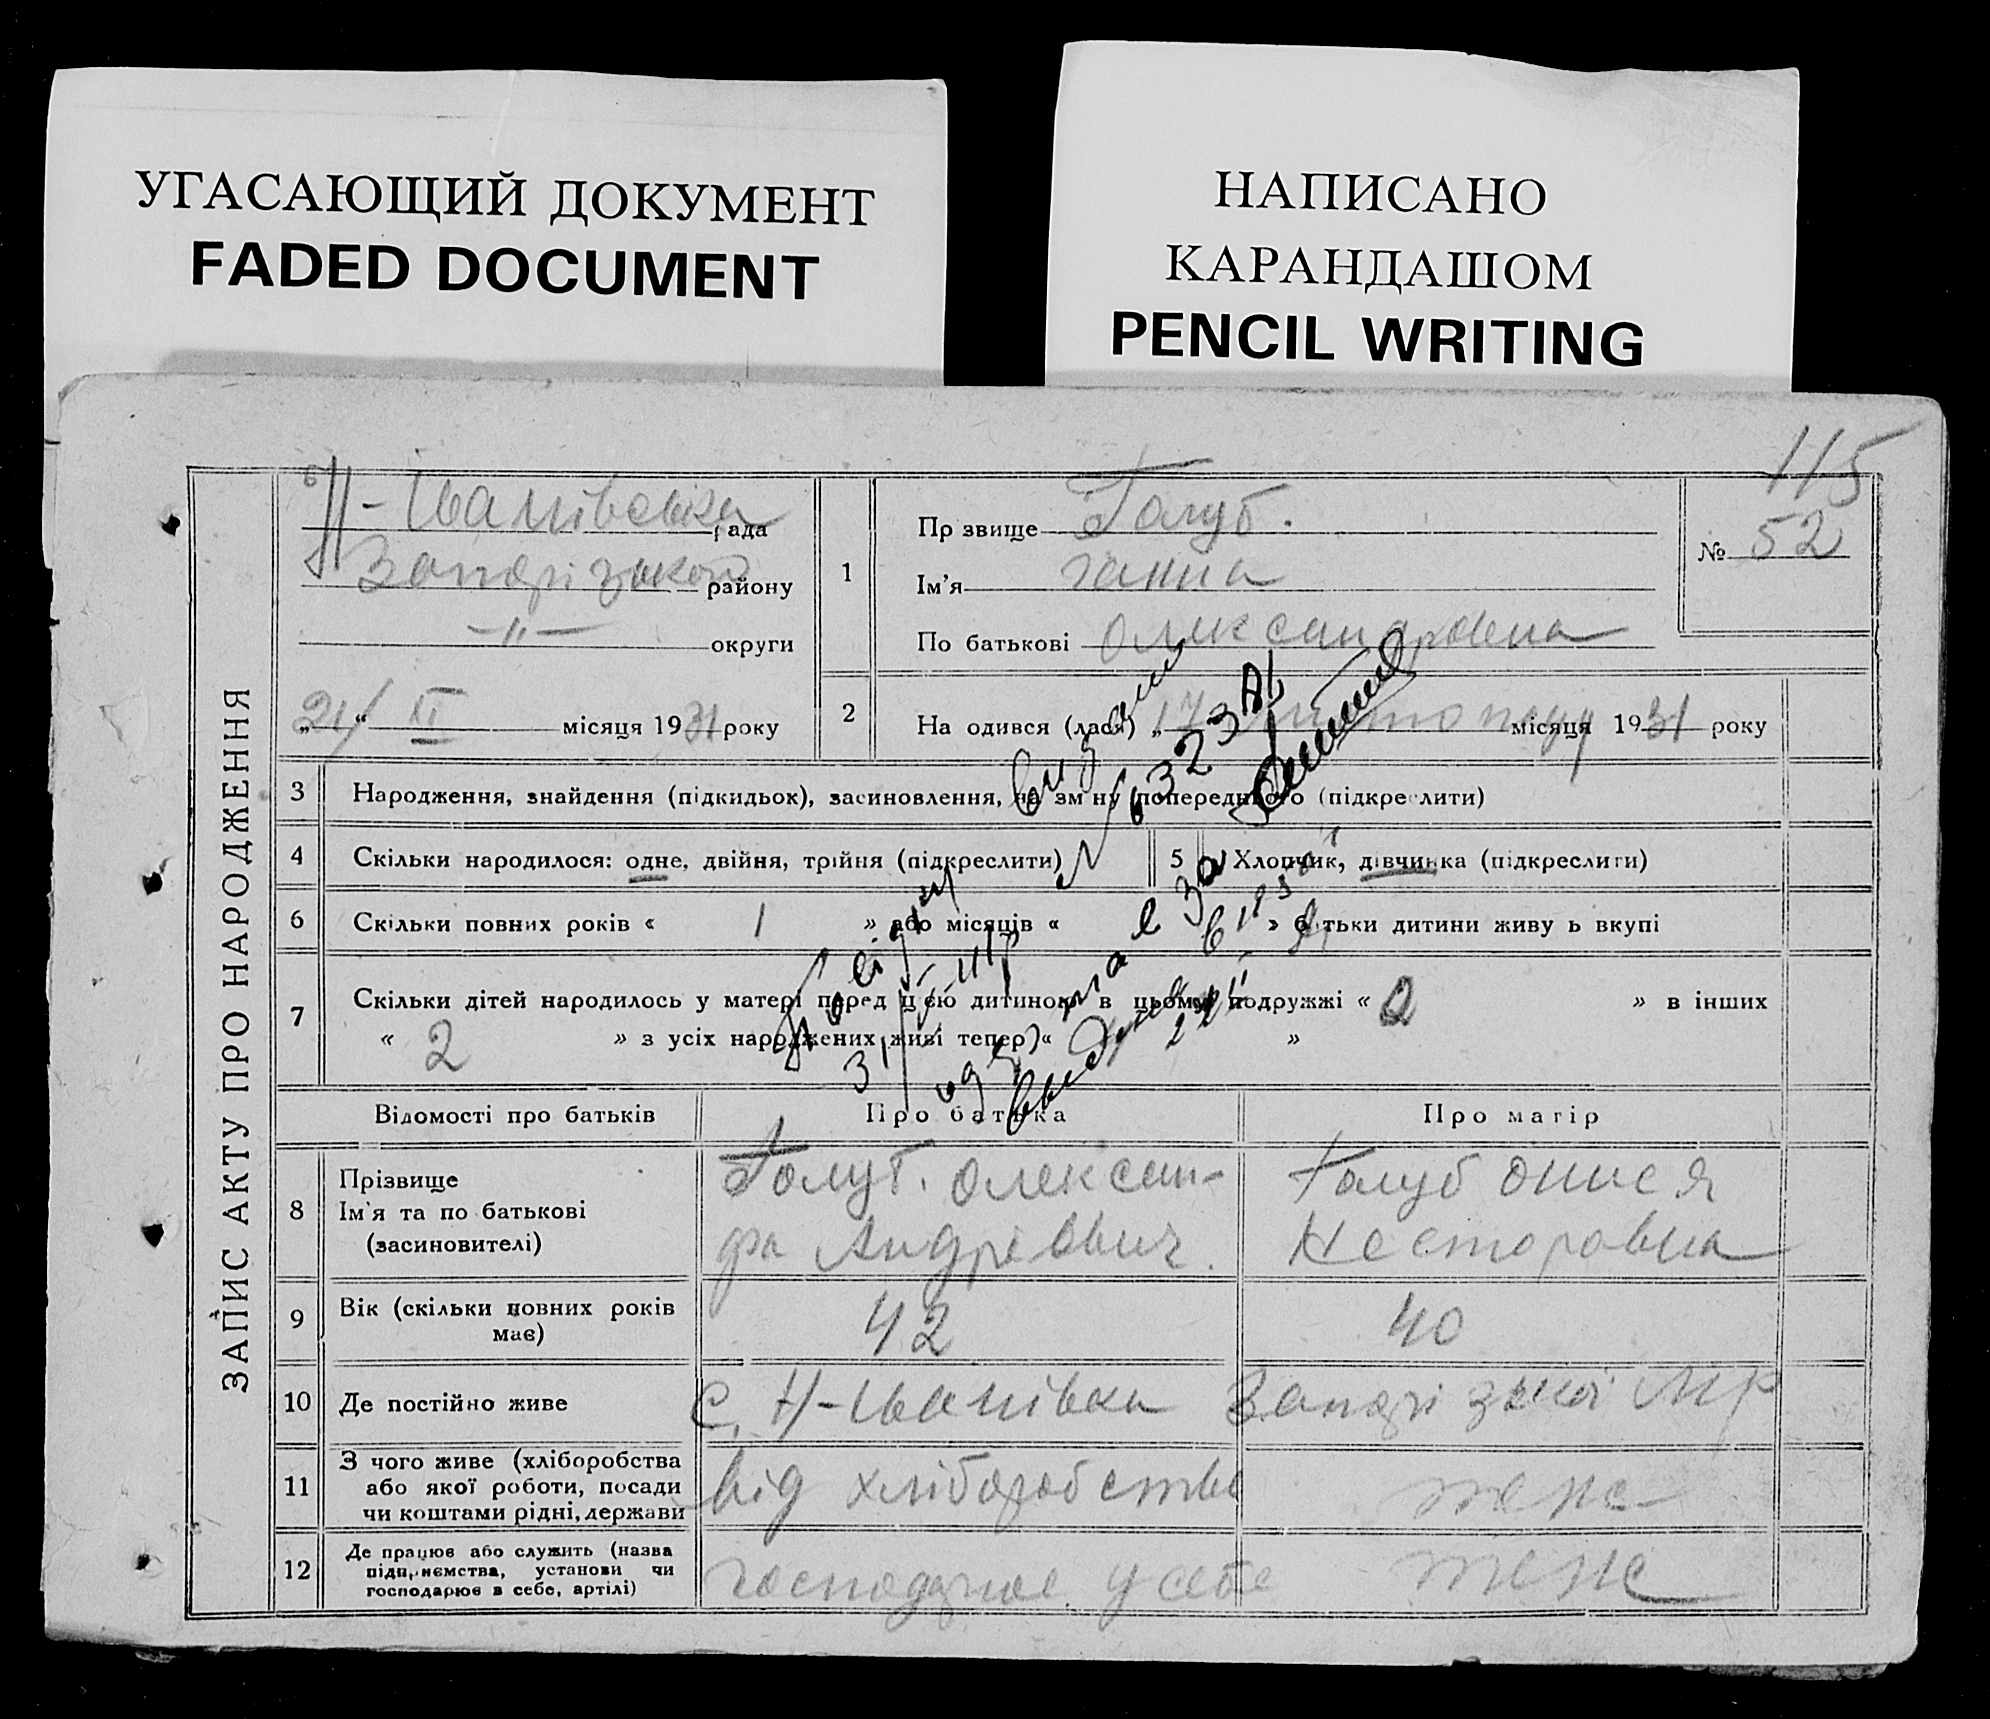 УГАСАЮЩИЙ ДОКУМЕНТ
FADED DOCUMENT
НАПИСАНО
КАРАНДАШОМ
PENCIL WRITING
115
ЗАПИС АКТУ ПРО НАРОДЖЕННЯ
Н-Іванівська рада
Запорізького району
-"- округи
„24“ XI місяця 1931 року
1
Пр звище Голуб.
Ім'я Ганна
По батькові Олександровна
№ 52
2
На одився (лася) „17 листопаду місяця 1931 року
3 Народження, знайдення (підкидьок), засиновлення, на зм ну попереднього (підкреслити)
4 Скільки народилося: одне, двійня, трійня (підкреслити)
5 Хлопчик, дівчинка (підкреслити)
6 Скільки повних років « 1 » або місяців « » батьки дитини живу ь вкупі
7 Скільки дітей народилось у матері перед цією дитиною в цьому подружжі « 2 » в інших
« 2 » з усіх народжених живі тепер « »
№ 6323
Відомості про батьків Про батька Про матір
8 Прізвище
Ім'я та по батькові
(засиновителі)
Голуб. Олексан-
дра Андрієвич.
Голуб Онися
Несторовна
9 Вік (скільки повних років
має)
42 40
10 Де постійно живе С. Н-Іванівка Запорізької МР
11 З чого живе (хліборобства
або якої роботи, посади
чи коштами рідні, держави
від хліборобства
теж
12 Де працює або служить (назва
підприємства, установи чи
господарює в себе, артілі)
господарює у себе
теж